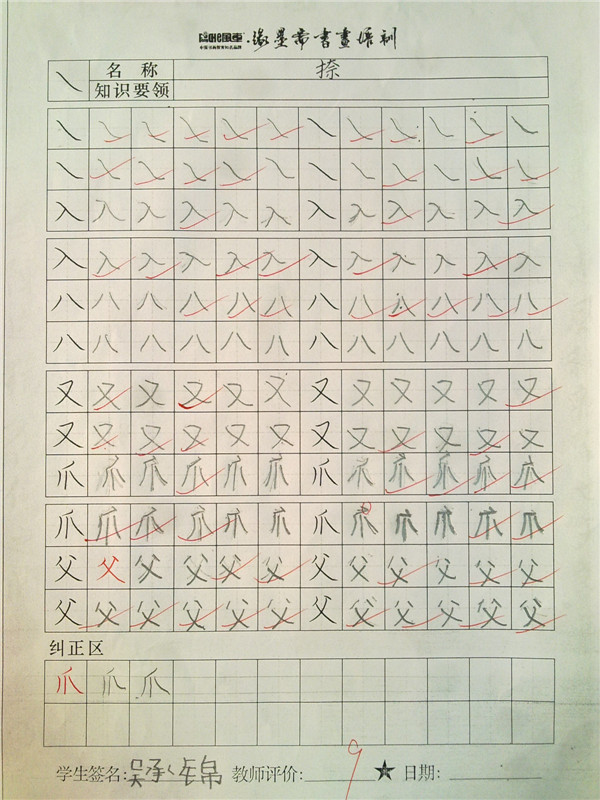 缘墨斋書畫培训
㇏ 名称 捺
知识要领
㇏ ㇏ ㇏ ㇏ ㇏ ㇏ ㇏ ㇏ ㇏ ㇏ ㇏ ㇏
㇏ ㇏ ㇏ ㇏ ㇏ ㇏ ㇏ ㇏ ㇏ ㇏ ㇏ ㇏
入 入 入 入 入 入 入 入 入 入 入 入
入 入 入 入 入 入 入 入 入 入 入 入
八 八 八 八 八 八 八 八 八 八 八 八
八 八 八 八 八 八 八 八 八 八 八 八
又 又 又 又 又 又 又 又 又 又 又 又
又 又 又 又 又 又 又 又 又 又 又 又
爪 爪 爪 爪 爪 爪 爪 爪 爪 爪 爪 爪
爪 爪 爪 爪 爪 爪 爪 爪 爪 爪 爪 爪
父 父 父 父 父 父 父 父 父 父 父 父
父 父 父 父 父 父 父 父 父 父 父 父
纠正区
爪 爪 爪
学生签名:吴承锦 教师评价: 9 ★ 日期: